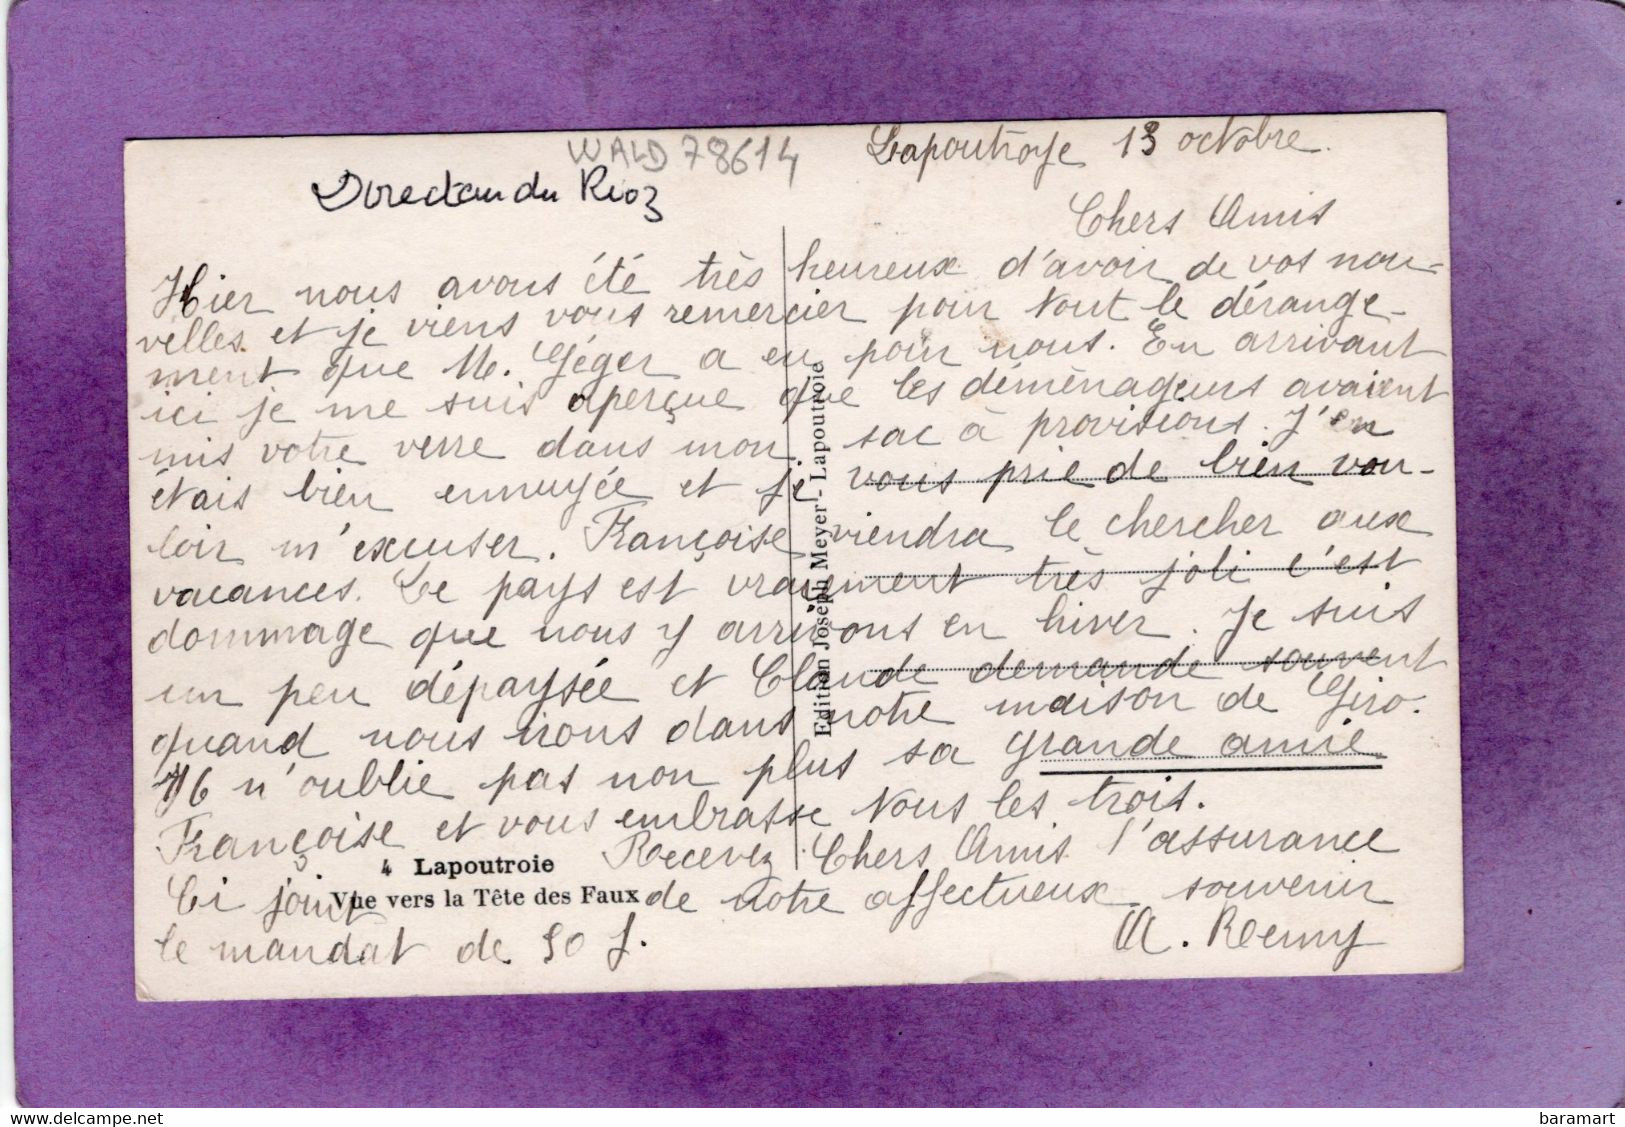 WALD 78614
Lapoutroye 13 octobre.
Chers Amis
Hier nous avons été très heureux d'avoir de vos nou-
velles et je viens vous remercier pour tout le dérange-
ment que M. Géger a eu pour nous. En arrivant
ici je me suis aperçue que les déménageurs avaient
mis votre verre dans mon sac à provisions. J'en
étais bien ennuyée et je vous prie de bien vou-
loir m'excuser. Françoise viendra le chercher aux
vacances. Le pays est vraiement très joli c'est
dommage que nous y arrivons en hiver. Je suis
un peu dépaysée et Claude demande souvent
quand nous irons dans notre maison de Giro.
Il n'oublie pas non plus sa grande amie
Françoise et vous embrasse tous les trois.
Recevez Chers Amis l'assurance
de notre affectueux souvenir
A. Remy
Ci joint
le mandat de 50 f.
4 Lapoutroie
Vue vers la Tête des Faux
Edition Joseph Meyer - Lapoutroie
www.delcampe.net
baramart